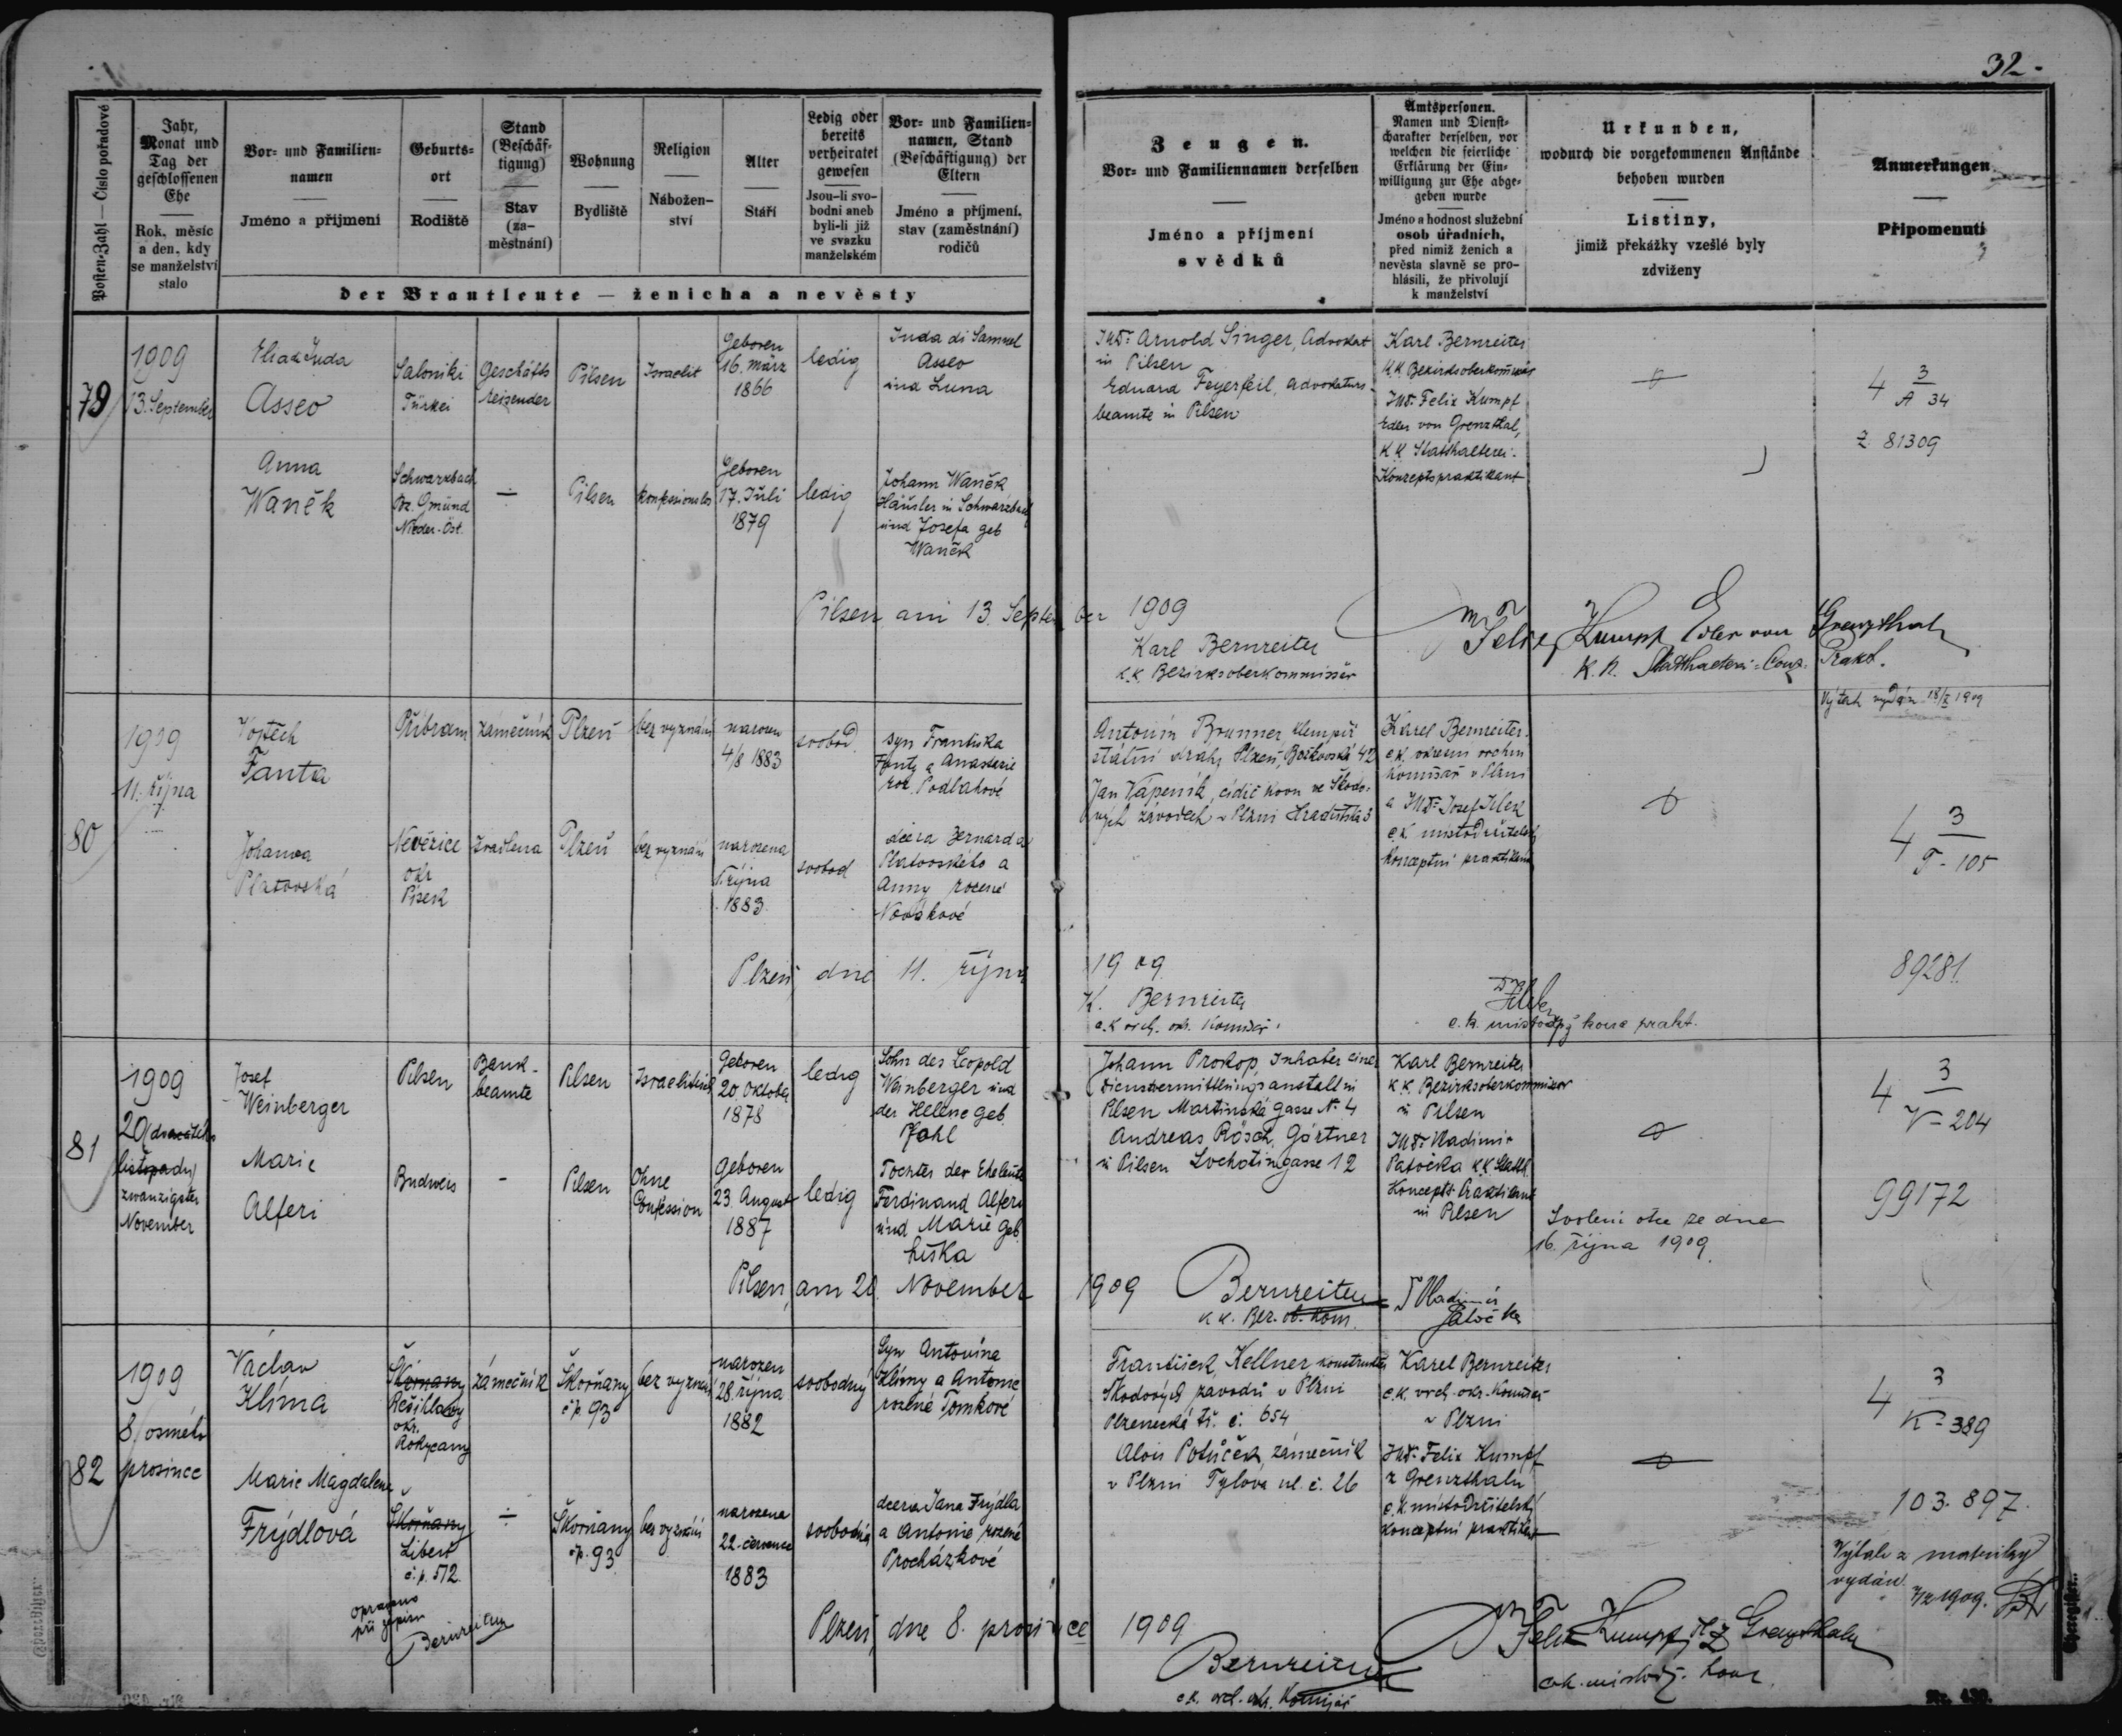 32.
Posten-Zahl — Číslo pořadové
Jahr,
Monat und
Tag der
geschlossenen
Ehe
Rok, měsíc
a den, kdy
se manželství
stalo
Vor- und Familien-
namen
Jméno a příjmení
Geburts-
ort
Rodiště
Stand
(Beschäf-
tigung)
Stav
(za-
městnání)
Wohnung
Bydliště
Religion
Nábožen-
ství
Alter
Stáří
Ledig oder
bereits
verheiratet
gewesen
Jsou-li svo-
bodni aneb
byli-li již
ve svazku
manželském
Vor- und Familien-
namen, Stand
(Beschäftigung) der
Eltern
Jméno a příjmení,
stav (zaměstnání)
rodičů
der Brautleute — ženicha a nevěsty
Zeugen.
Vor- und Familiennamen derselben
Jméno a příjmení
svědků
Amtspersonen.
Namen und Dienst-
charakter derselben, vor
welchen die feierliche
Erklärung der Ein-
willigung zur Ehe abge-
geben wurde
Jméno a hodnost služební
osob úřadních,
před nimiž ženich a
nevěsta slavně se pro-
hlásili, že přivolují
k manželství
Urkunden,
wodurch die vorgekommenen Anstände
behoben wurden
Listiny,
jimiž překážky vzešlé byly
zdviženy
Anmerkungen
Připomenutí
79
1909
13. September
Elia Juda
Asseo
Saloniki
Türkei
Geschäfts
reisender
Pilsen
Israelit
Geboren
16. März
1866
ledig
Juda di Samuel
Asseo
und Luna
JUDr. Arnold Singer, Advokat
in Pilsen
Eduard Feyerfeil, Advokaturs-
beamte in Pilsen
Karl Bernreiter
K.K. Bezirksoberkommissär
JUDr. Felix Kumpf
Edler von Grenzthal,
K.K. Statthalterei-
Konzeptspraktikant
4 3
A 34
Z. 81309
Anna
Waněk
Schwarzbach
Bz. Gmünd
Nieder-Öst.
÷
Pilsen
konfessionslos
Geboren
17. Juli
1879
ledig
Johann Waněk
Häusler in Schwarzbach
und Josefa geb
Waněk
Pilsen am 13. September 1909
Karl Bernreiter
k.k. Bezirksoberkommissär
Felix Kumpf Edler von Grenzthal
K.K. Statthalterei-Conz. Prakt.
80
1909
11. října
Vojtěch
Fanta
Příbram
zámečník
Plzeň
bez vyznání
narozen
4/8 1883
svobod.
syn Františka
Fanty a Anastazie
roz. Podlahové
Antonín Brunner, klempíř
státní dráhy Plzeň, Božkovská 42
Jan Vápeník, cídič kovu ve Škodo-
vých závodech v Plzni Hradištská 3
Karel Bernreiter
c.k. okresní vrchní
komisař v Plzni
a JUDr. Josef
c.k. místodržitelský
konceptní praktikant
Výtah vydán 18/X 1909
4 3
F - 105
Johanna
Platovská
Nevězice
okr
Písek
švadlena
Plzeň
bez vyznání
narozena
října
1883
svobod
dcera Bernarda
Platovského a
Anny rozené
Novákové
89281
Plzeň, dne 11. října 1909
K. Bernreiter
c.k. vrch. okr. komisař
c.k. místodrž. konc prakt.
81
1909
20 (dvacátého
listopadu)
zwanzigsten
November
Josef
Weinberger
Pilsen
Bank-
beamte
Pilsen
Israelitisch
Geboren
20. Oktober
1878
ledig
Sohn des Leopold
Weinberger und
der Helene geb.
Johann Prokop, Inhaber einer
Dienstvermittlungsanstalt in
Pilsen Martinská gasse No. 4
Andreas Rösch, Gärtner
in Pilsen Lochotingasse 12
Karl Bernreiter
k.k. Bezirksoberkommissar
in Pilsen
JUDr. Vladimir
Patočka K.K. Statth
Koncepts Praktikant
in Pilsen
4 3
V - 204
99172
Marie
Alferi
Budweis
-
Pilsen
Ohne
Confession
Geboren
23. August
1887
ledig
Tochter der Eheleute
Ferdinand Alferi
und Marie geb.
Liška
Svolení otce ze dne
16. října 1909.
Pilsen, am 20. November 1909
Bernreiter
k.k. Bez. ob. kom.
Vladimír
Patočka
82
1909
8 (osmého
prosince
Václav
Klíma
Škorňany
okr.
Rokycany
zámečník
Škorňany
čp. 93
bez vyznání
narozen
28. října
1882
svobodný
Syn Antonína
Klímy a Antonie
rozené Tomkové
František Kellner konstruktér
Škodových závodů v Plzni
Plzenecká tř. č. 654
Alois Potůček, zámečník
v Plzni Tylova ul. č. 26
Karel Bernreiter
c.k. vrch. okr. komisař
v Plzni
JUDr. Felix Kumpf
z Grenzthalu
c.k. místodržitelský
konceptní praktikant
4 3
K - 389
103.897.
Marie Magdalena
Frýdlová
Škorňany
č.p. 572.
÷
Škorňany
čp. 93
bez vyznání
narozena
22. července
1883
svobodná
dcera Jana Frýdla
a Antonie, rozené
Procházkové
Výtah z matriky
vydán 1909.
opraveno
při zápisu
Bernreiter
Plzeň, dne 8. prosince 1909
Bernreiter
c.k. vrch. okr. komisař
Felix Kumpf z Grenzthalu
c.k. místodrž. konc.